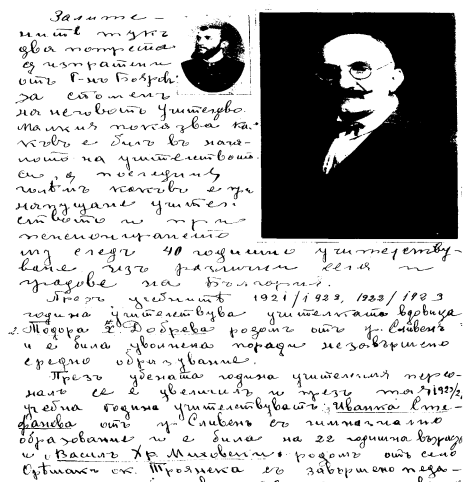 Залите-
нитѣ тукъ
два портрета
сѫ изпратени
отъ Г-нъ Бояровъ
за споменъ
на неговото учителство.
Малкия показва ка-
къвъ е билъ въ нача-
лото на учителството
си, а последния
голѣмъ какъвъ е при
напущане учител-
ството и при
пенсионирането
му следъ 40 годишно учителству-
ване изъ различни села и
градове на България.
Презъ учебнитѣ 1921/1922, 1922/1923
година учителствува учителката вдовица
Тодора Добрева родомъ отъ гр. Сливенъ
и е била уволнена поради незавършено
средно образувание.
Презъ учебната година учителския персо-
налъ се е увеличилъ и презъ тая 1923/24
учебна година учителствуватъ: Иванка Сте-
фанова отъ гр. Сливенъ съ гимназиално
образование и е била на 22 годишна възрастъ
и Василъ Хр. Миховски родомъ отъ село
Орѣшакъ ок. Троянска съ завършено педа-